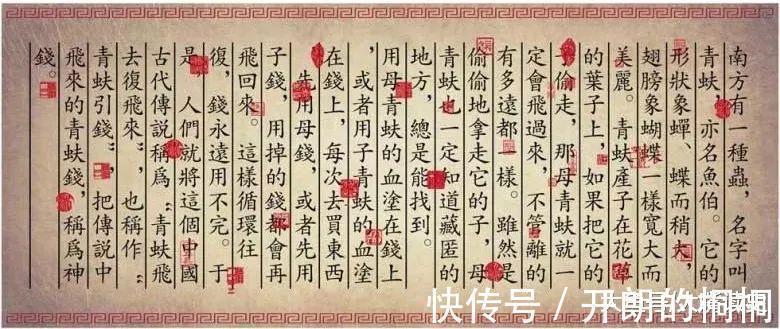 南方有一種蟲，名字叫
青蚨，亦名魚伯。它的
形狀象蟬、蝶而稍大，
翅膀象蝴蝶一樣寬大而
美麗。青蚨產子在花草
的葉子上，如果把它的
子偷走，那母青蚨就一
定會飛過來，不管離的
有多遠都一樣。雖然是
偷偷地拿走它的子，母
青蚨也一定知道藏匿的
地方，總是能找到。
用母青蚨的血塗在錢上
，或者用子青蚨的血塗
在錢上，每次去買東西
，先用母錢，或者先用
子錢，用掉的錢都會再
飛回來。這樣循環往
復，錢永遠用不完。于
是，人們就將這個中國
古代傳說稱爲“青蚨飛
去復飛來”，也稱作“
青蚨引錢”，把傳說中
飛來的青蚨錢，稱爲神
錢。
快传号 / 开朗的桐桐